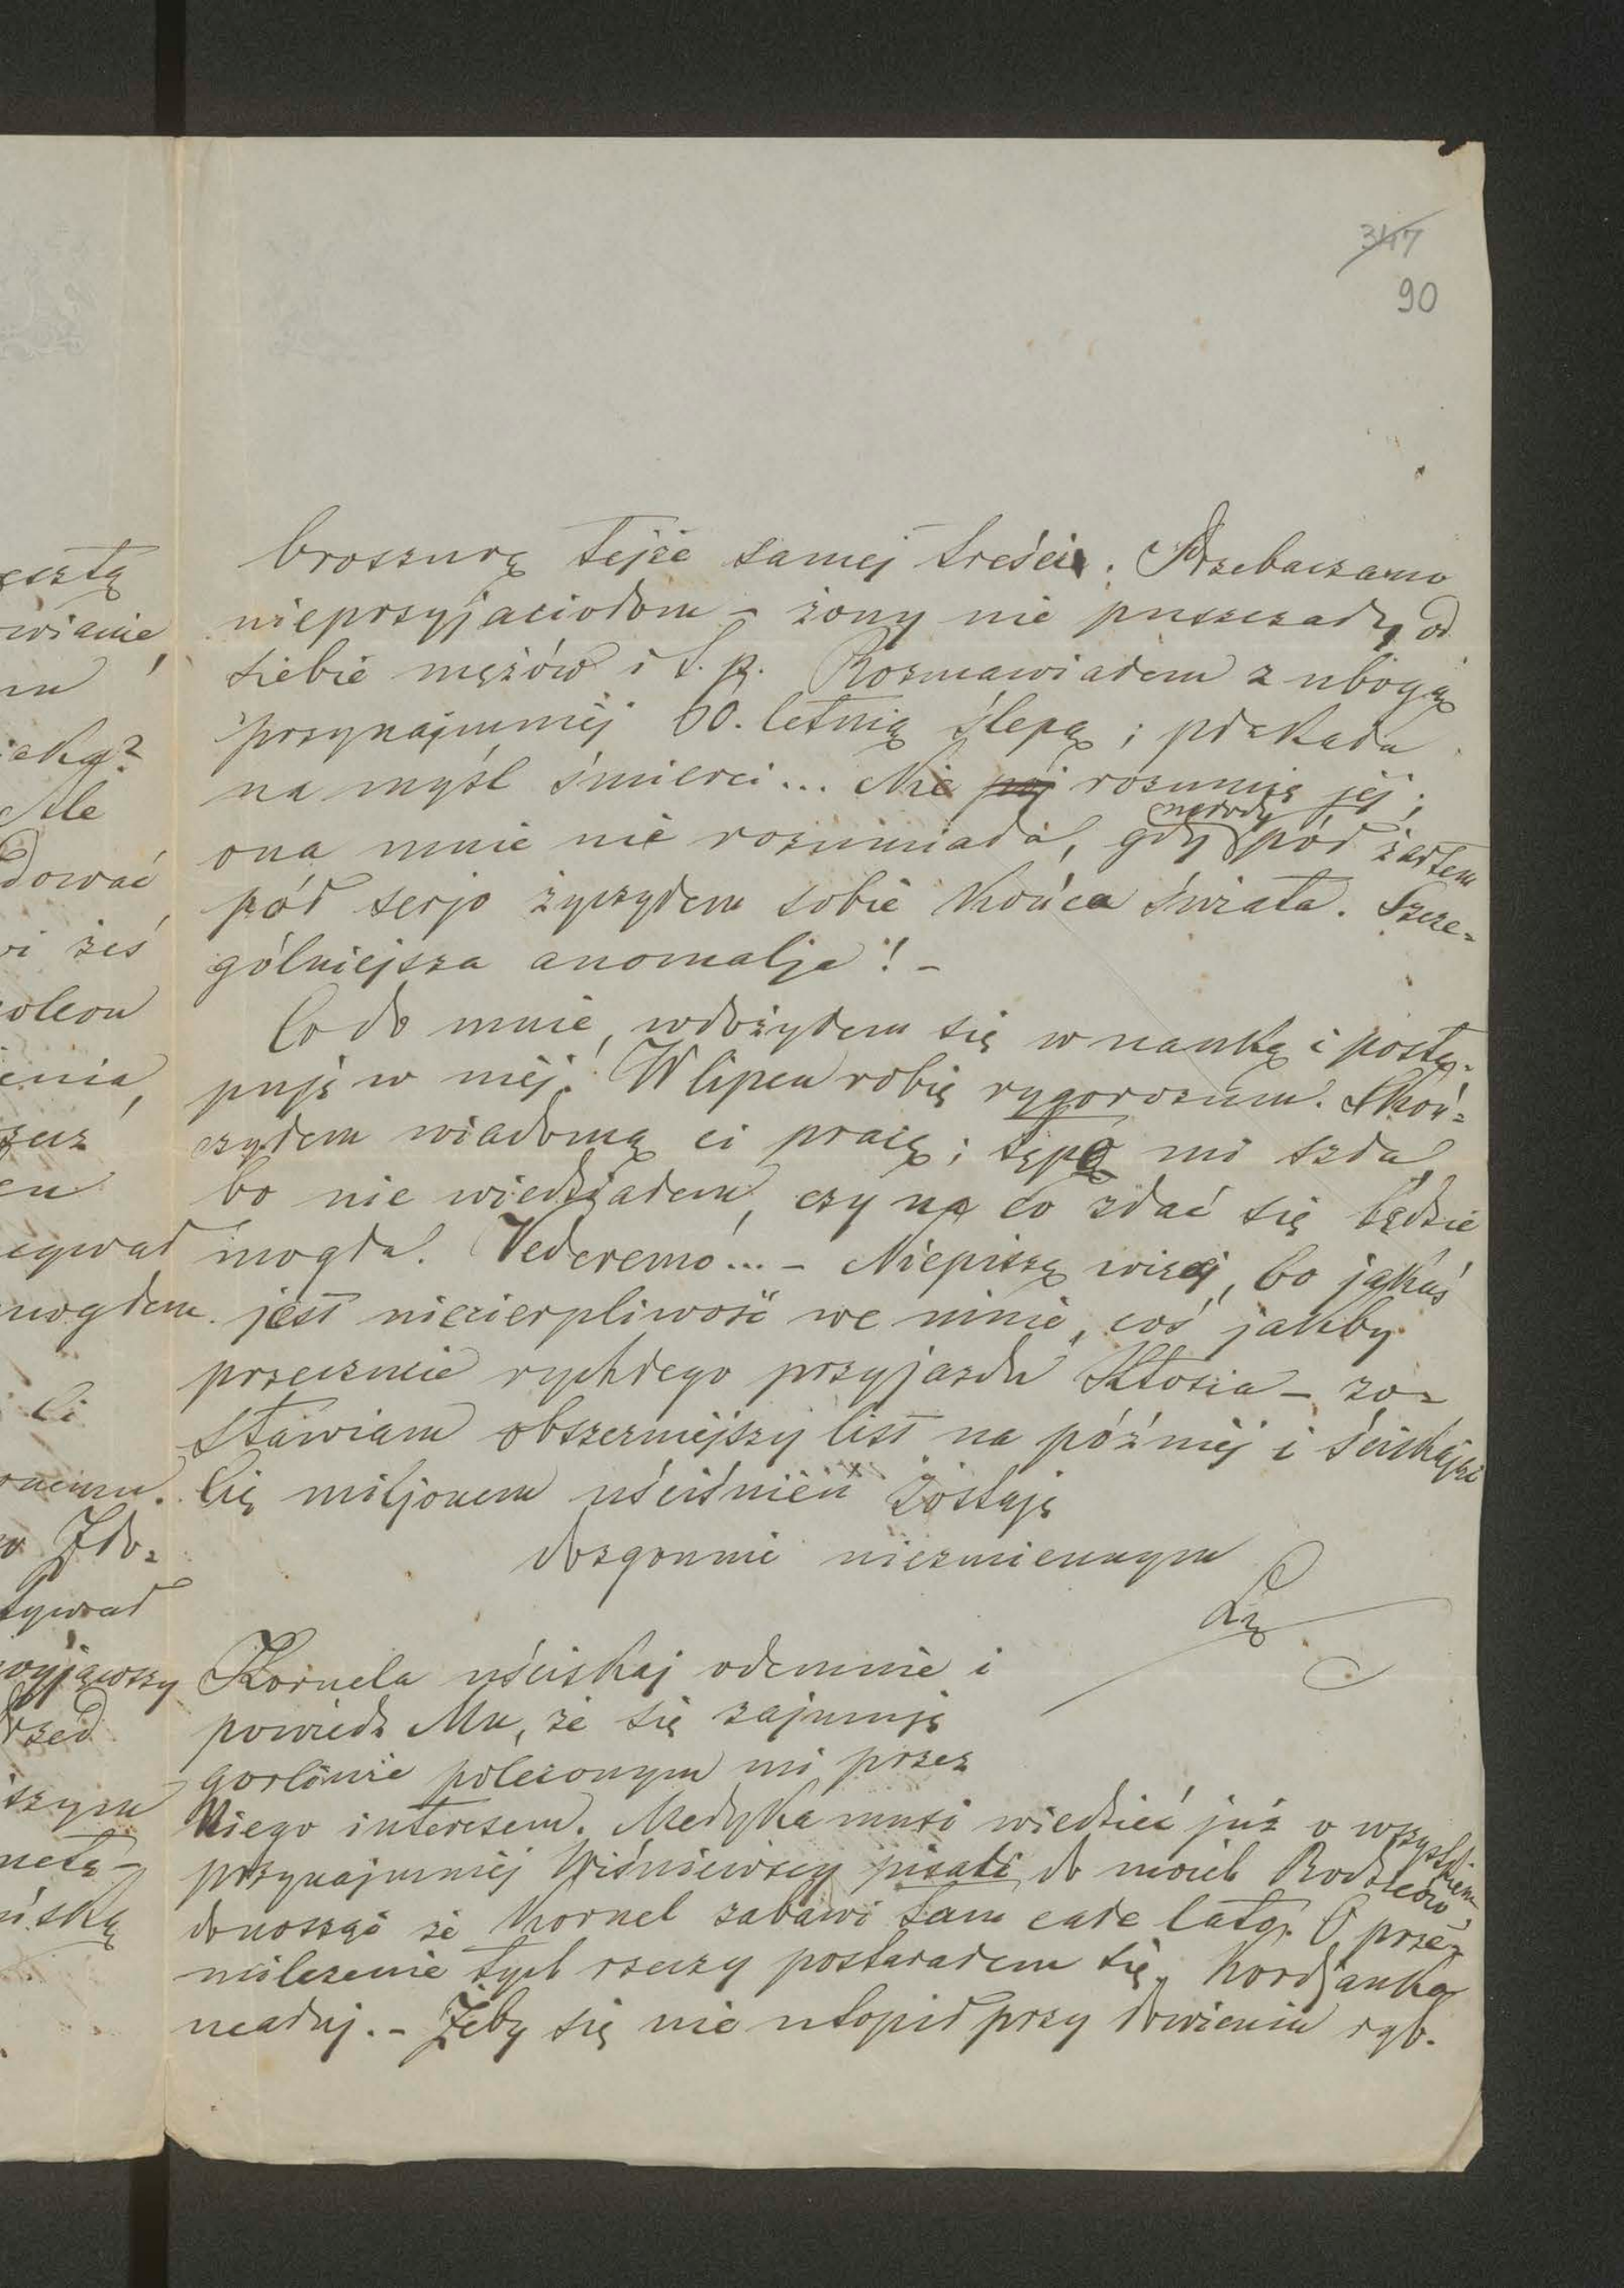 347
90
broszurę tejże samej treści. Przebaczano
nieprzyjaciołom – żony nie puszczały od
siebie mężów i t. p. Rozmawiałem z ubogą
przynajmniej 60. letnią ślepą; płakała
na myśl śmierci... Nie poj rozumię jej;
ona mnie nie rozumiała, gdy pół żartem
pół serjo życzyłem sobie końca świata. Szcze-
gólniejsza anomalja! –
Co do mnie, włożyłem się w naukę i postę-
puję w niéj. W lipcu robię rygorozum. Skoń-
czyłem wiadomą ci pracę; tępo mi szła,
bo nie wiedziałem, czy na co zdać się będzie
mogła. Vederemo... – Niepiszę więcej, bo jakaś
jest niecierpliwość we mnie, coś jakby
przeczucie rychłego przyjazdu Ktosia – zo-
stawiam obszerniejszy list na później i ściskając
Cię miljonem uściśnień zostaję
dozgonnie niezmiennym
Kornela uściskaj odemnie i
powiedz Mu, że się zajmuję
gorliwie poleconym mi przez
Niego interesem. Medyka musi wiedzieć już o wszystkiem
przynajmniej Wiśniewscy pisali do moich Rodziców
donosząc że Kornel zabawi tam całe lato. O prze-
milczenie tych rzeczy postarałem się. Kordjanka
ucałuj. – Żeby się nie utopił przy łowieniu ryb.
eszłą
wianie,
eką?
Ale
dować
wi żeś
oleon
enia,
mogłem
Ci
Zdo-
wyjąwszy